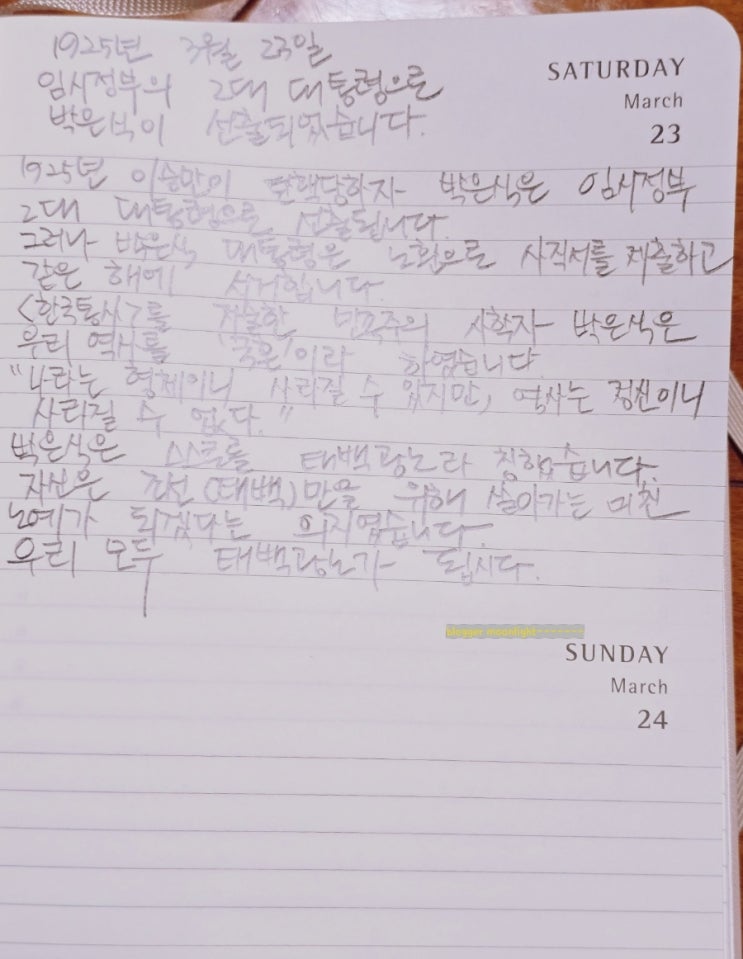 1925년 3월 23일
임시정부의 2대 대통령으로
박은식이 선출되었습니다.
SATURDAY
March
23
1925년 이승만이 탄핵당하자 박은식은 임시정부
2대 대통령으로 선출됩니다.
그러나 박은식 대통령은 노환으로 사직서를 제출하고
같은 해에 서거합니다.
<한국통사>를 저술한 민족주의 사학자 박은식은
우리 역사를 '국혼'이라 하였습니다.
"나라는 형체이니 사라질 수 있지만, 역사는 정신이니
사라질 수 없다."
박은식은 스스로를 태백광노라 칭했습니다.
자신은 조선(태백)만을 위해 살아가는 미친
노예가 되겠다는 의지였습니다.
우리 모두 태백광노가 됩시다.
blogger moonlight~~~~~~~
SUNDAY
March
24